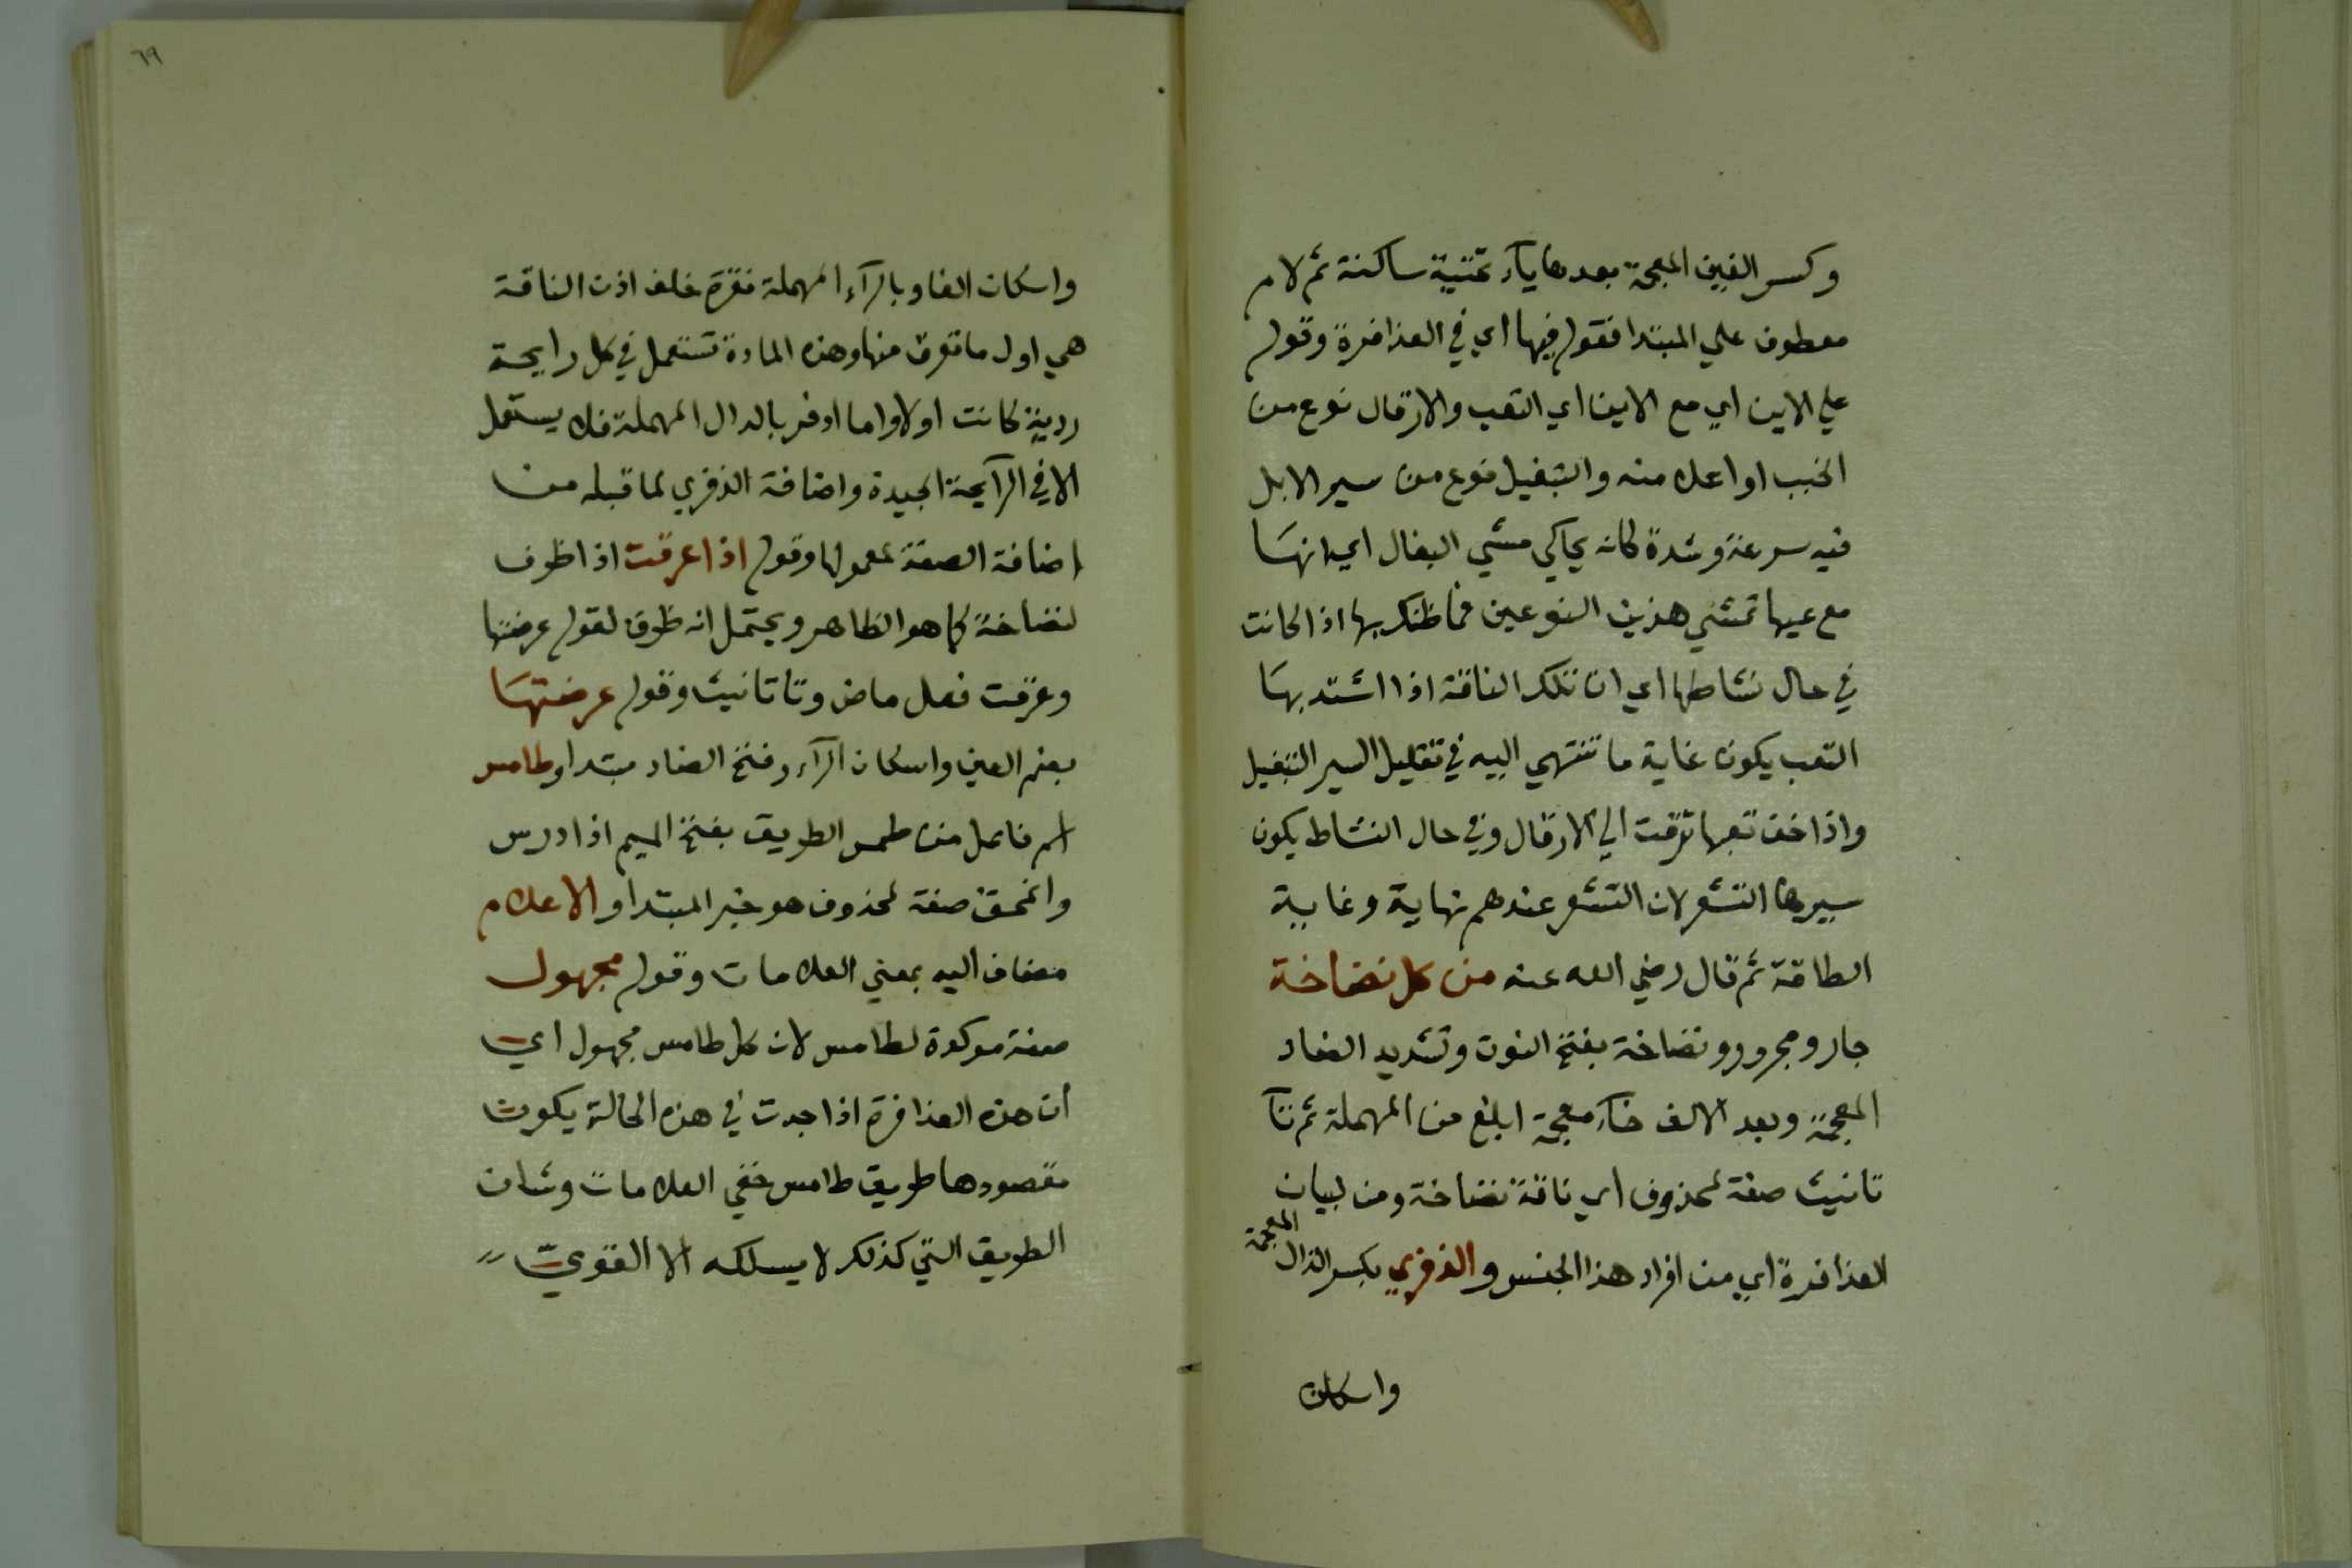 وكسر الغين المعجمة بعدها يآء تحتية ساكنة ثم لام
معطوف علي المبتدا فقوله فيها اي في العذافرة وقوله
علي الاين اي مع الاين اي التعب والارقال نوع من
الخبب او اعلا منه والتبغيل نوع من سير الابل
فيه سرعة وشدة كانه يحاكي مشي البغال اي انها
مع عيها تمشي هذين النوعين فما ظنك بها اذا كانت
في حال نشاطها اي ان تلك الناقة اذا اشتد بها
التعب يكون غاية ما تنتهي اليه في تقليل السير التبغيل
واذا خف تعبها ترقت الي الارقال وفي حال النشاط يكون
سيرها التشعر لان التشعر عندهم نهاية وغاية
الطاقة ثم قال رضي الله عنه من كل نضاخة
جار ومجرور ونضاخة بفتح النون وتشديد الضاد
المعجمة وبعد الالف خآء معجمة ابلغ من المهملة ثم تآ
تانيث صفة لمحذوف اي ناقة نضاخة ومن لبيان
العذافرة اي من افراد هذا الجنس والذفري بكسر الذال المعجمة
واسكان
٦٩
واسكان الفا وبالرآء المهملة نقرة خلف اذن الناقة
هي اول ما تعرق منها وهذه المادة تستعمل في كل رايحة
ردية كانت اولا واما ادفر بالدال المهملة فلا يستعمل
الا في الرآيحة الجيدة واضافة الذفري لما قبله من
اضافة الصفة لمعمولها وقوله اذا عرقت اذا ظرف
لنضاخة كما هو الظاهر ويحتمل انه ظرف لقوله عرضتها
وعرقت فعل ماض وتا تانيث وقوله عرضتها
بضم العين واسكان الرآء وفتح الضاد مبتدا وطامس
اسم فاعل من طمس الطريق بفتح الميم اذا درس
وانمحق صفة لمحذوف هو خبر المبتدا والاعلام
مضاف اليه بمعني العلامات وقوله مجهول
صفة موكدة لطامس لان كل طامس مجهول اي
ان هذه العذافرة اذا جدت في هذه الحالة يكون
مقصودها طريق طامس خفي العلامات وشان
الطريق التي كذلك لا يسلكه الا القوي